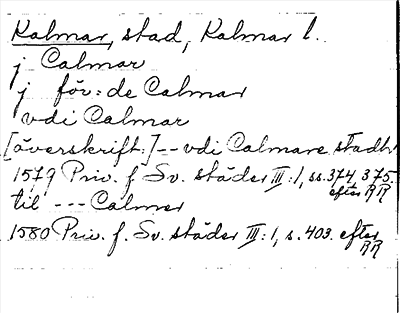 Kalmar, stad, Kalmar l.
j Calmar
j för⸗de Calmar
vdi Calmar
[överskrift:] -- vdi Calmare stadh
1579 Priv. f. Sv. städer III:1, ss. 374, 375. efter RR
til --- Calmer
1580 Priv. f. Sv. städer III:1, s. 403. efter RR